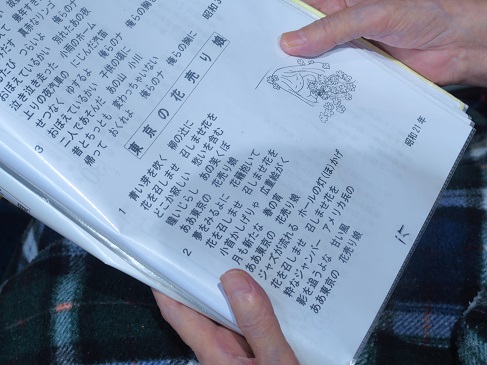 幾年すぎ
だす 真赤なリンゴ
たび つらいよ 俺らのナ 俺らの胸
おぼえているかい 別れたあの夜
泣き泣き走った 小雨のホーム
上りの夜汽車の にじんだ汽笛
せつなく ゆするよ 俺らのナ 俺らの胸
3 おぼえているかい 子供の頃に
二人であそんだ あの山 小川
昔とちっとも 変わっちゃいない
帰って おくれよ 俺らのナ 俺らの胸に
昭和3
東京の花売り娘
昭和21年
1 青い芽を吹く 柳の辻に
花を召しませ 召しませ花を
どこか寂しい 愁いを含む
瞳いじらし あの笑くぼ
ああ東京の 花売り娘
2 夢をみるよに 花籠抱いて
花を召しませ 召しませ花を
小首かしげりゃ 広重えがく
月も新たな 春の宵
ああ東京の 花売り娘
ジャズが流れる ホールの灯(ほ)かげ
花を召しませ 召しませ花を
粋なジャンパー アメリカ兵の
影を追うよな 甘い風
ああ東京の 花売り娘
15